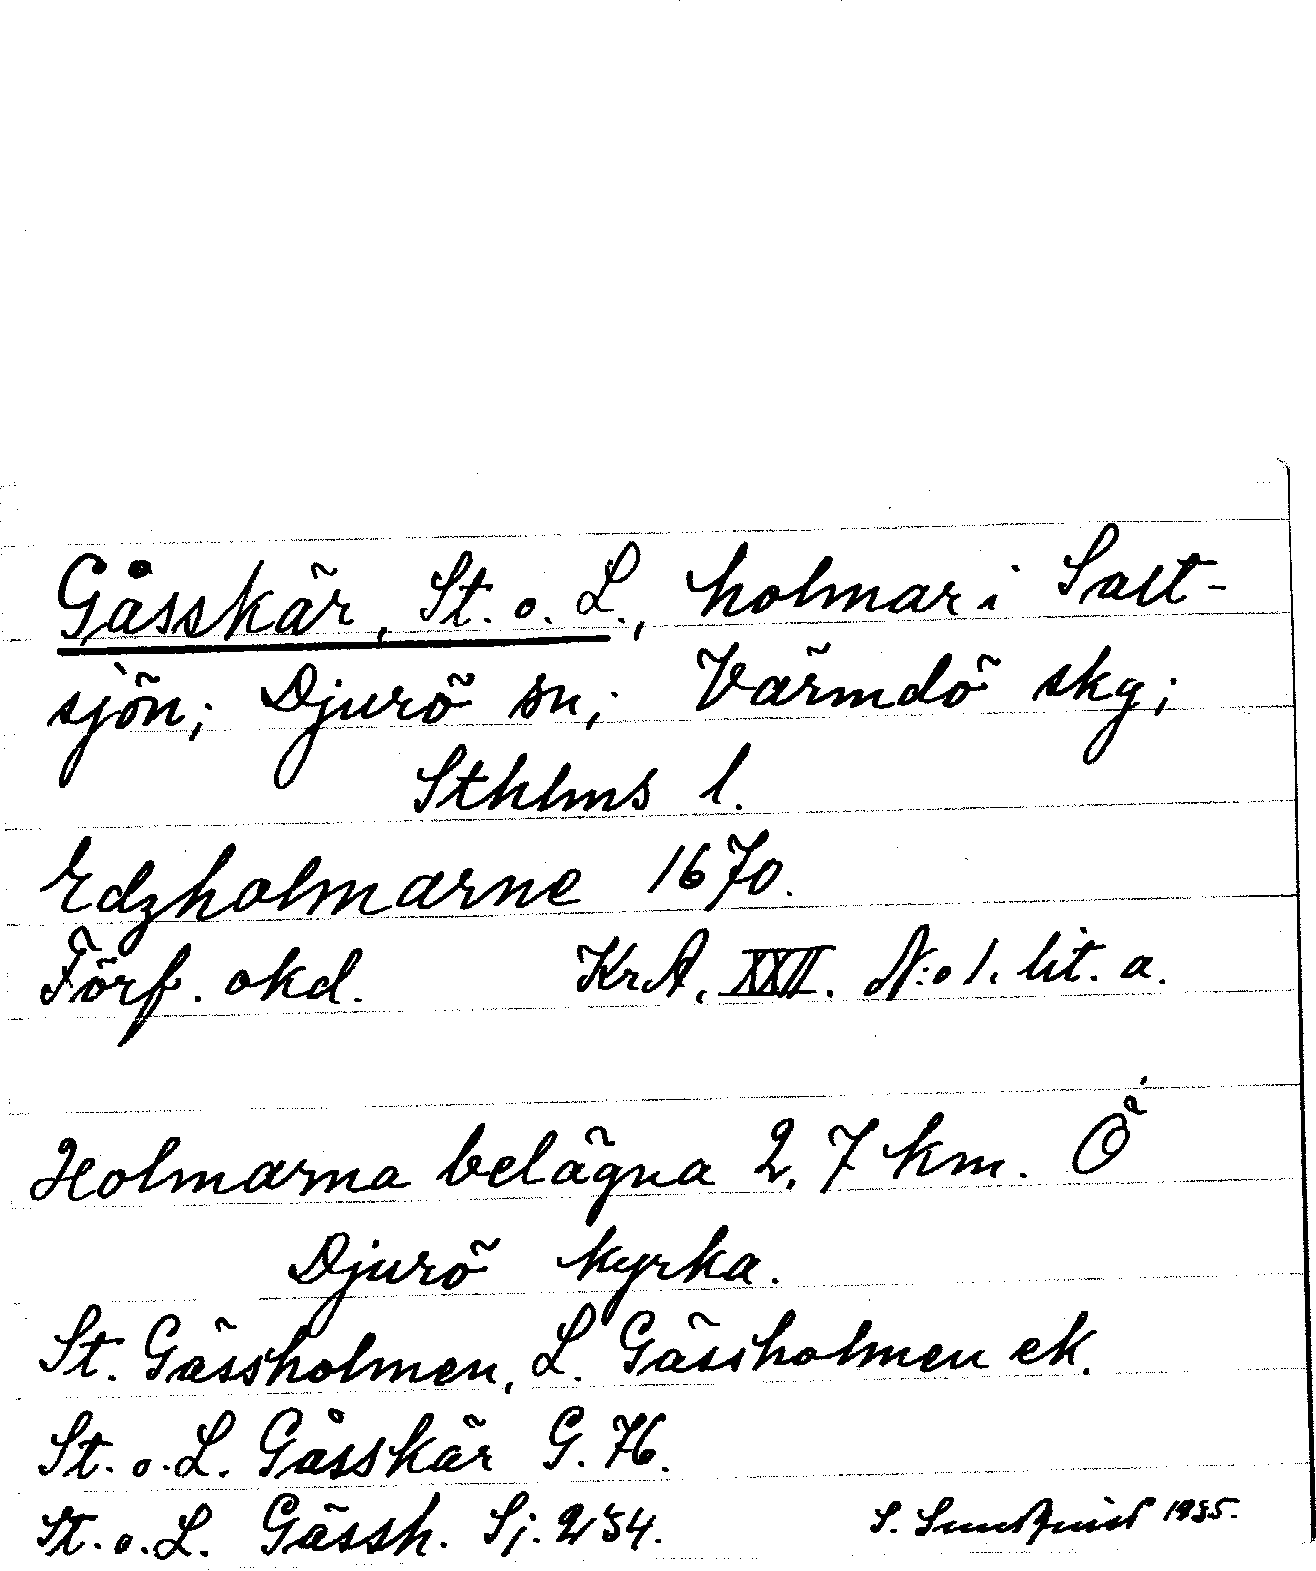 Gåsskär, St. o. L., holmar i Salt-
sjön; Djurö sn; Värmdö skg;
Sthlms l.
Edzholmarne 1670.
Förf. okd. KrA. XXII. N:o 1. lit. a.
Holmarna belägna 2,7 km. Ö
Djurö kyrka.
St. Gässholmen, L. Gässholmen ek.
St. o. L. Gåsskär G. 76.
St. o. L. Gässh. Sj. 234.
S. Sundquist 1935.